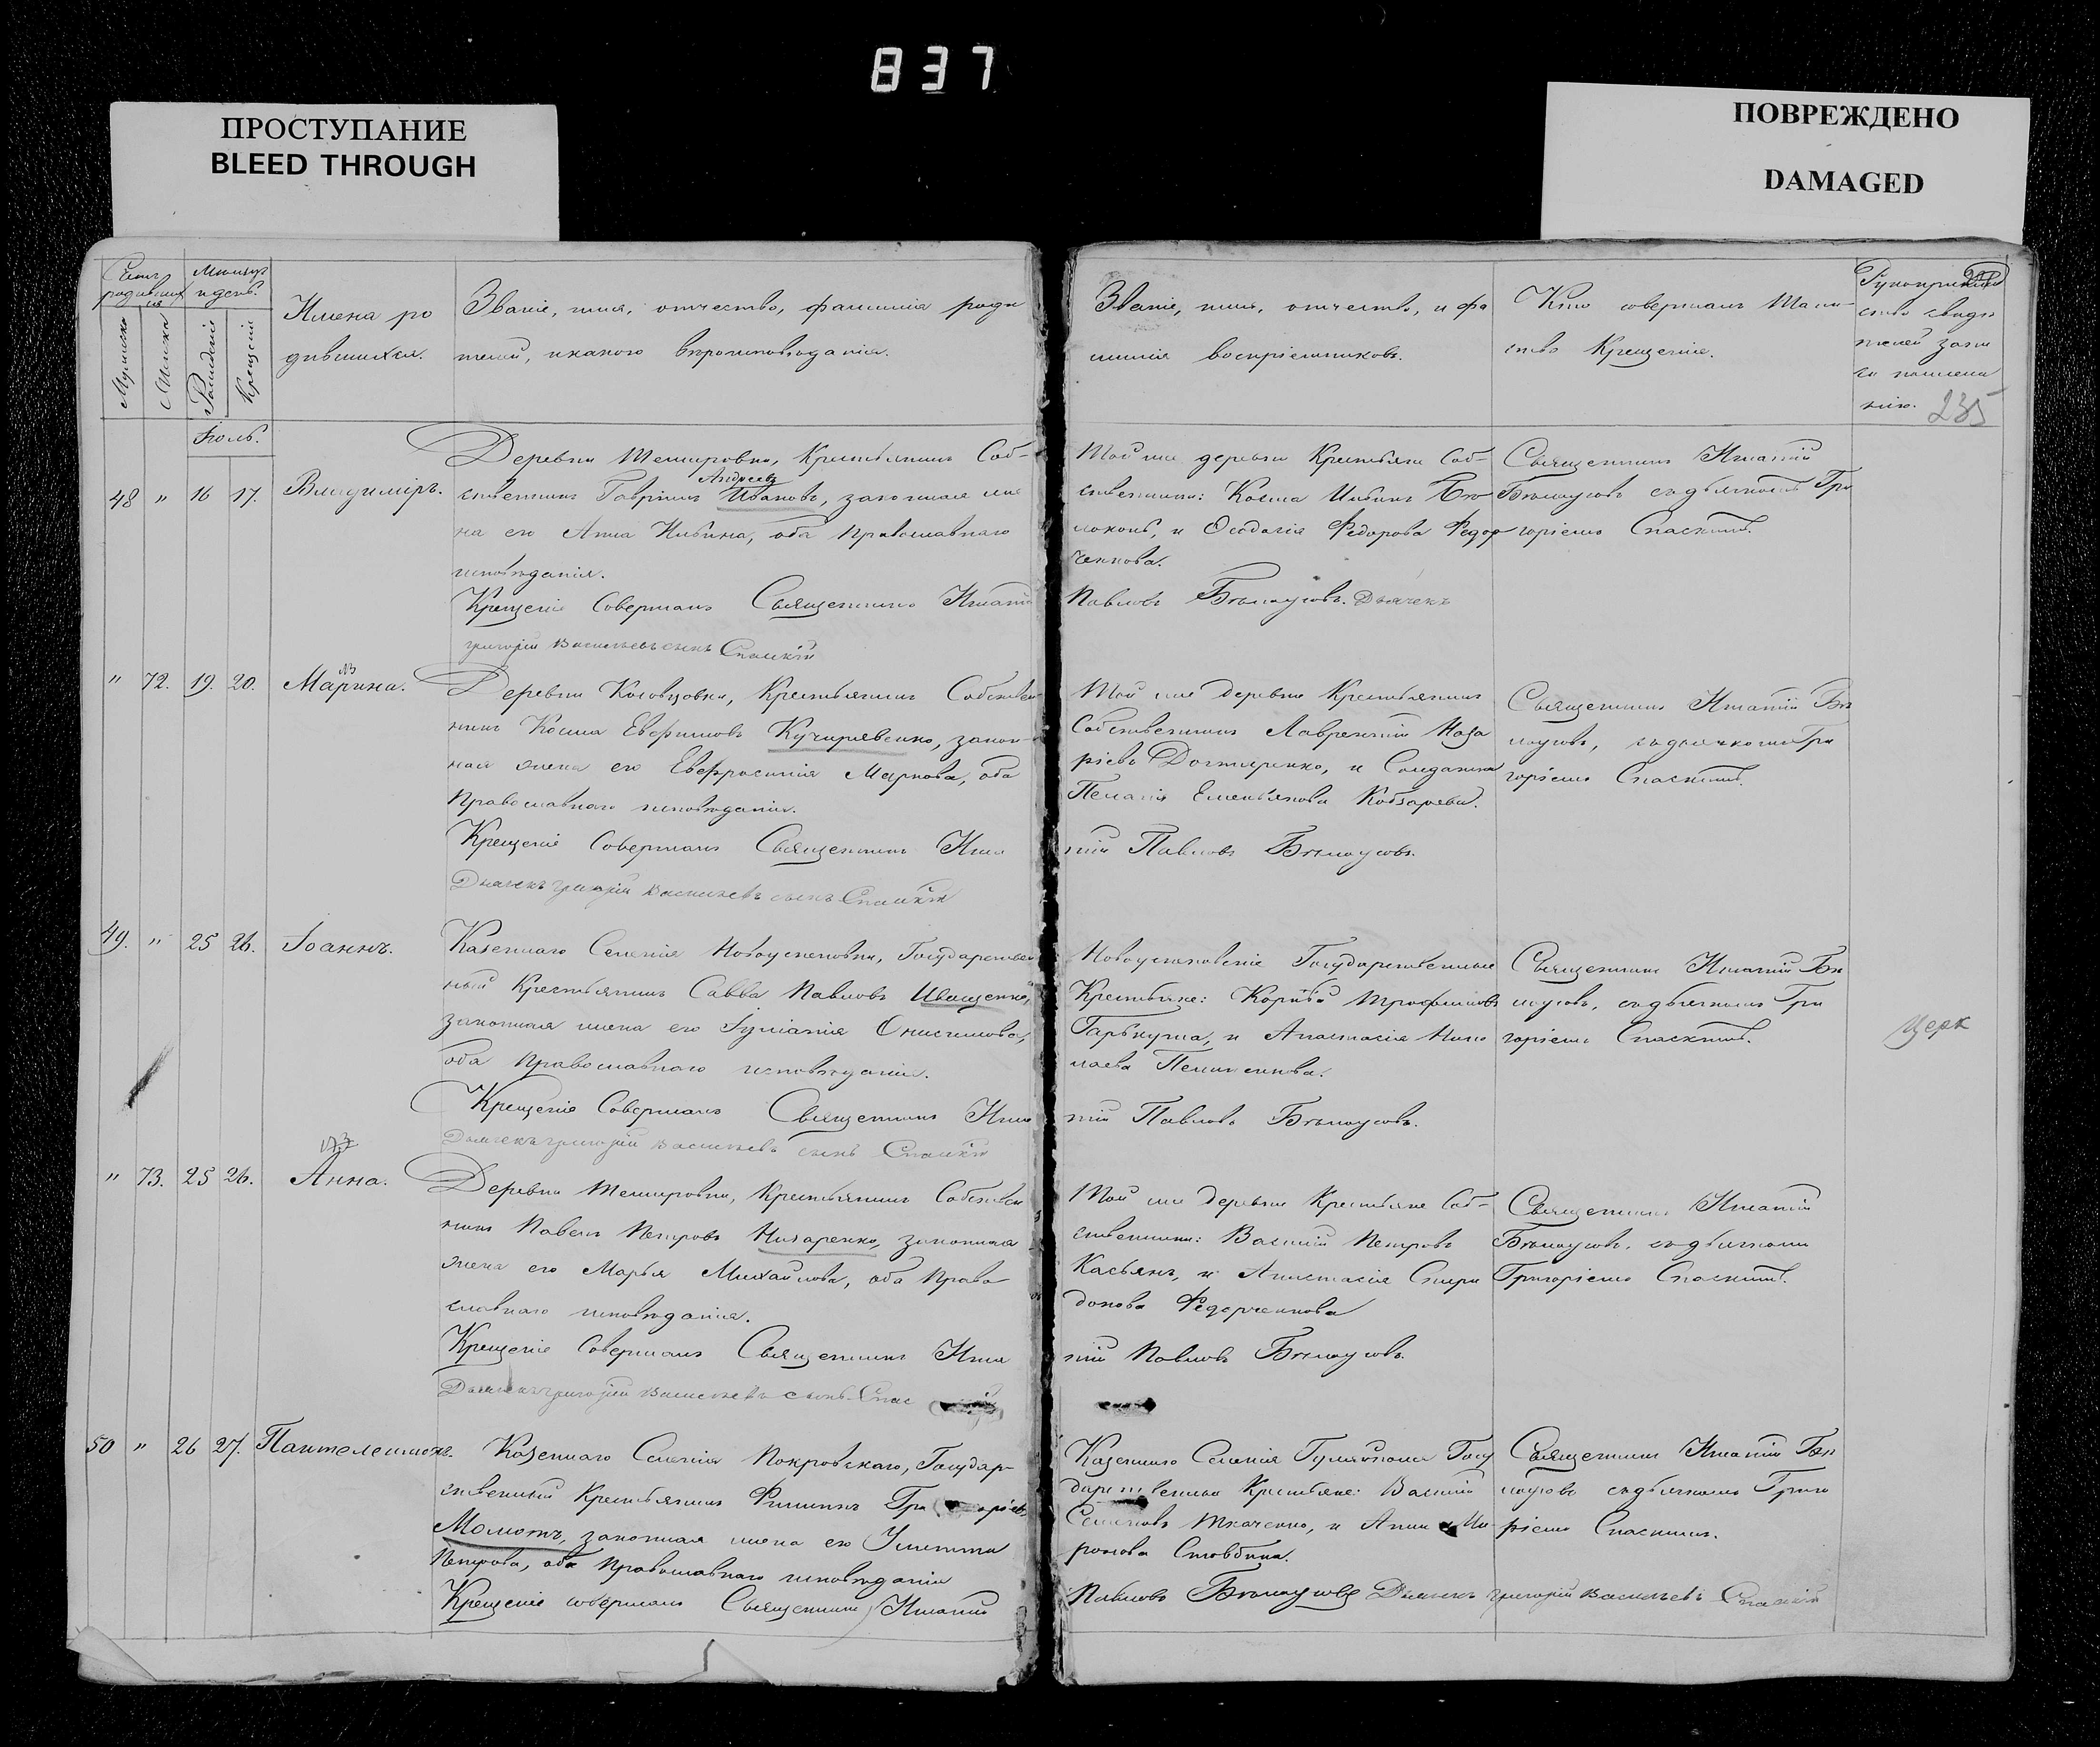 837
ПРОСТУПАНИЕ
BLEED THROUGH
ПОВРЕЖДЕНО
DAMAGED
Счетъ родившихся
Мѣсяцъ и день.
Мужеска
Женска
Рожденія
Крещенія
Имена родившихся.
Званіе, имя, отчество, фамилія роди
телей, и какого вѣроисповѣданія.
Званіе, имя, отчество, и фа
милія воспріемниковъ.
Кто совершалъ Таин-
ство Крещенія.
Рукоприклад
ство свидѣ
телей записи
235
Іюль.
48 " 16 17. Владиміръ.
Деревни Темировки, Крестьянинъ Соб-
Андреевъ
ственникъ Гавріилъ Ивановъ, законная же
на его Анна Ильина, оба Православнаго
исповѣданія.
Крещеніе Совершалъ Священникъ Игнатій
Григорій Васильевъ сынъ Спаскій
Той же деревни Крестьяне Соб-
ственники: Косма Ильинъ
и Феодосія Федорова Федор
ченкова.
Павловъ Бѣлоусовъ. Дьячекъ
Священникъ Игнатій
Бѣлоусовъ съ дьячкомъ Гри
горіемъ Спаскимъ.
" 72. 19. 20. Марина.
Деревни Косовцовки, Крестьянинъ Собствен
никъ Косма Евфимовъ Кучирявенко, закон-
ная жена его Евфросинія Маркова, оба
Православнаго исповѣданія.
Крещеніе Совершалъ Священникъ Игна
Дьячекъ Григорій Васильевъ сынъ Спаскій
Той же деревни Крестьянинъ
Собственникъ Лаврентій Наза
ріевъ и Солдатка
Пелагія Емельянова Кобзарева.
тій Павловъ Бѣлоусовъ.
Священникъ Игнатій Бѣ
лоусовъ, съ дьячкомъ Гри
горіемъ Спаскимъ.
49. " 25 26. Іоаннъ.
Казеннаго Селенія Новоуспеновки, Государствен
ный Крестьянинъ Савва Павловъ Иващенко,
законная жена его Іуліанія Онисимова,
оба Православнаго исповѣданія.
Крещеніе Совершалъ Священникъ Игна
Дьячекъ Григорій Васильевъ сынъ Спаскій
Новоуспеновскіе Государственные
Крестьяне: Корнѣй Трофимовъ
Гарькуша, и Анастасія Нико
лаева
тій Павловъ Бѣлоусовъ.
Священникъ Игнатій Бѣ
лоусовъ, съ дьячкомъ Гри
горіемъ Спаскимъ.
Церк
" 73. 25 26. Анна.
Деревни Темировки, Крестьянинъ Собствен
никъ Павелъ Петровъ Писаренко, законная
жена его Марья Михайлова, оба Право
славнаго исповѣданія.
Крещеніе Совершалъ Священникъ Игна
Дьячекъ Григорій Васильевъ сынъ Спас
Той же деревни Крестьяне Соб-
ственники: Василій Петровъ
Касьянъ, и Анастасія Спири
донова Федорченкова
тій Павловъ Бѣлоусовъ.
Священникъ Игнатій
Бѣлоусовъ, съ дьячкомъ
Григоріемъ Спаскимъ.
50 " 26 27. Пантелеимонъ.
Казеннаго Селенія Покровскаго, Государ-
ственный Крестьянинъ Филиппъ Григорьевъ
Моломъ, законная жена его Улитта
Петрова, оба Православнаго исповѣданія
Крещеніе совершалъ Священникъ Игнатій
Казеннаго Селенія Гуляйполя Госу
дарственные Крестьяне: Василій
Семеновъ Ткаченко, и Анна Ми-
ронова Стовбина.
Павловъ Бѣлоусовъ Дьячекъ Григорій Васильевъ Спаскій
Священникъ Игнатій Бѣ
лоусовъ съ дьячкомъ Григо
ріемъ Спаскимъ.